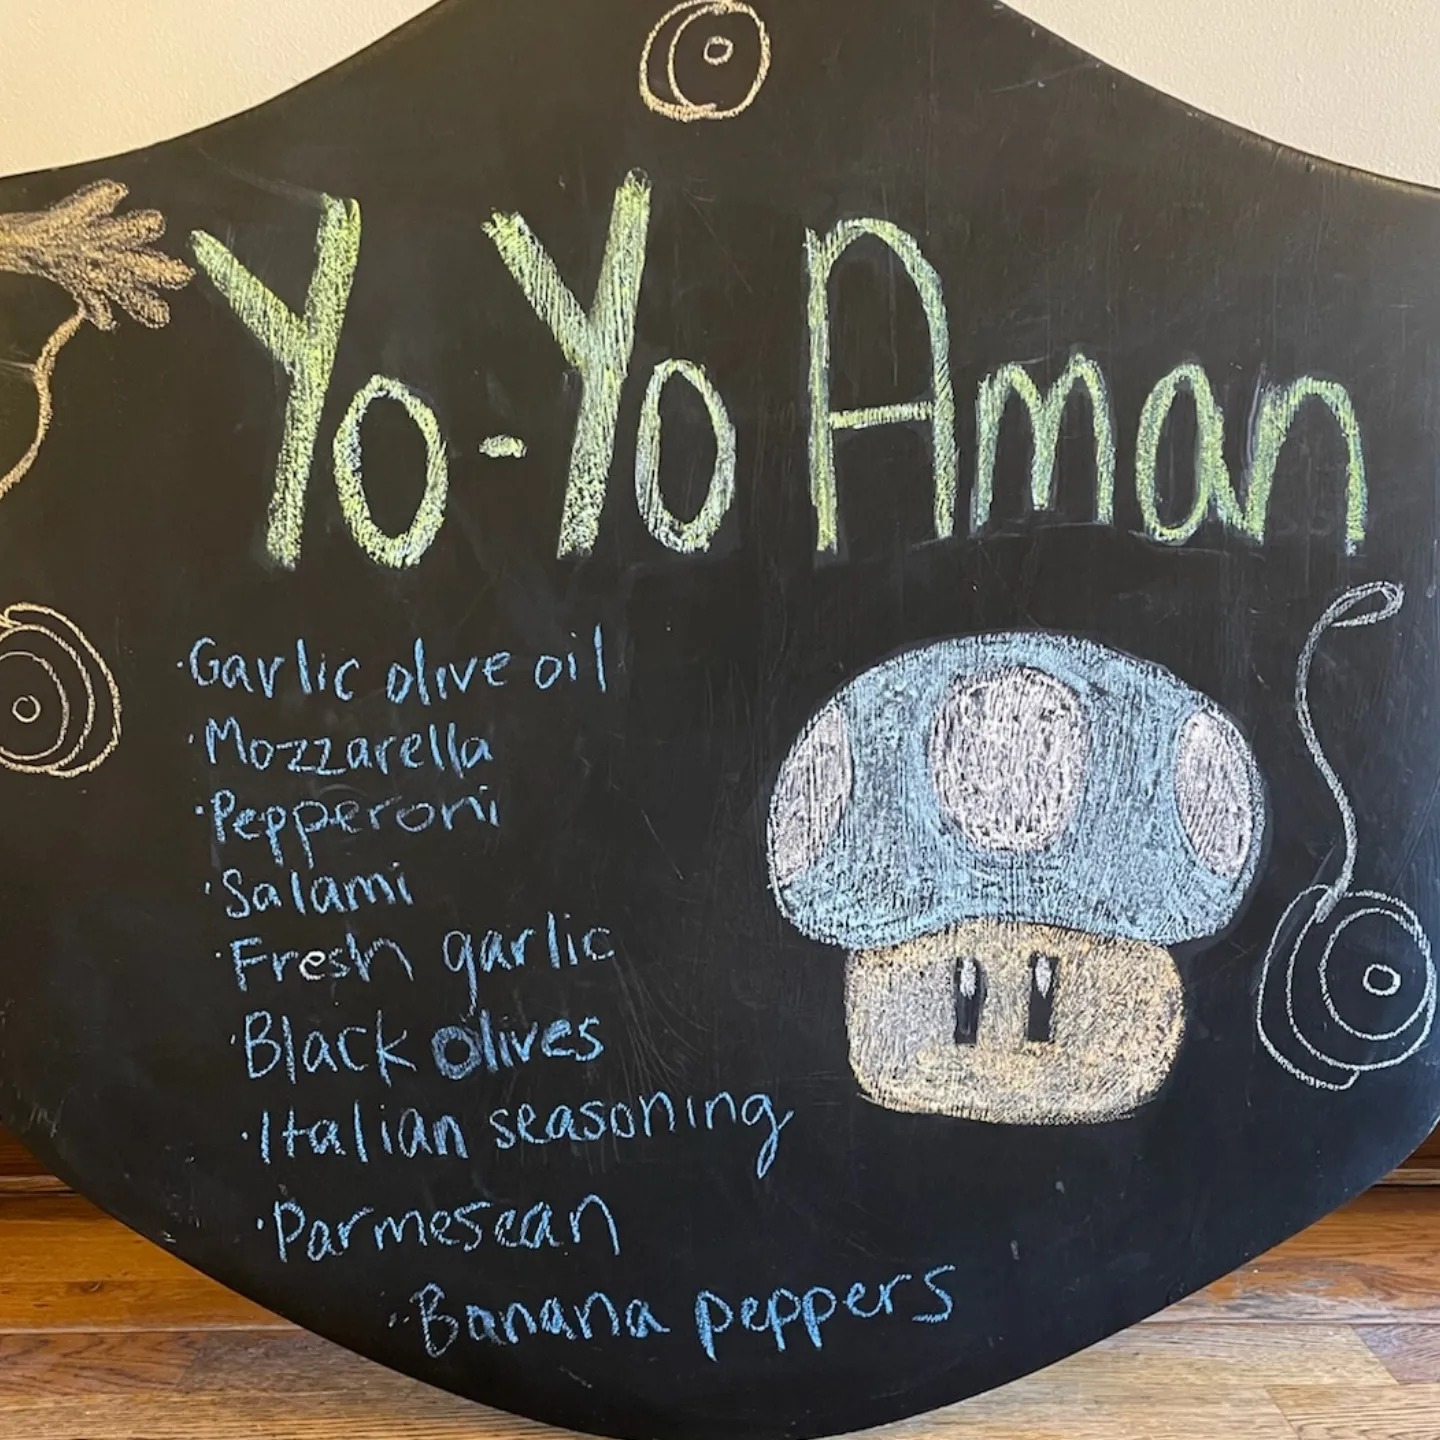 Yo-Yo Aman
·Garlic olive oil
·Mozzarella
·Pepperoni
·Salami
·Fresh garlic
·Black olives
·Italian seasoning
·Parmesean
·Banana peppers